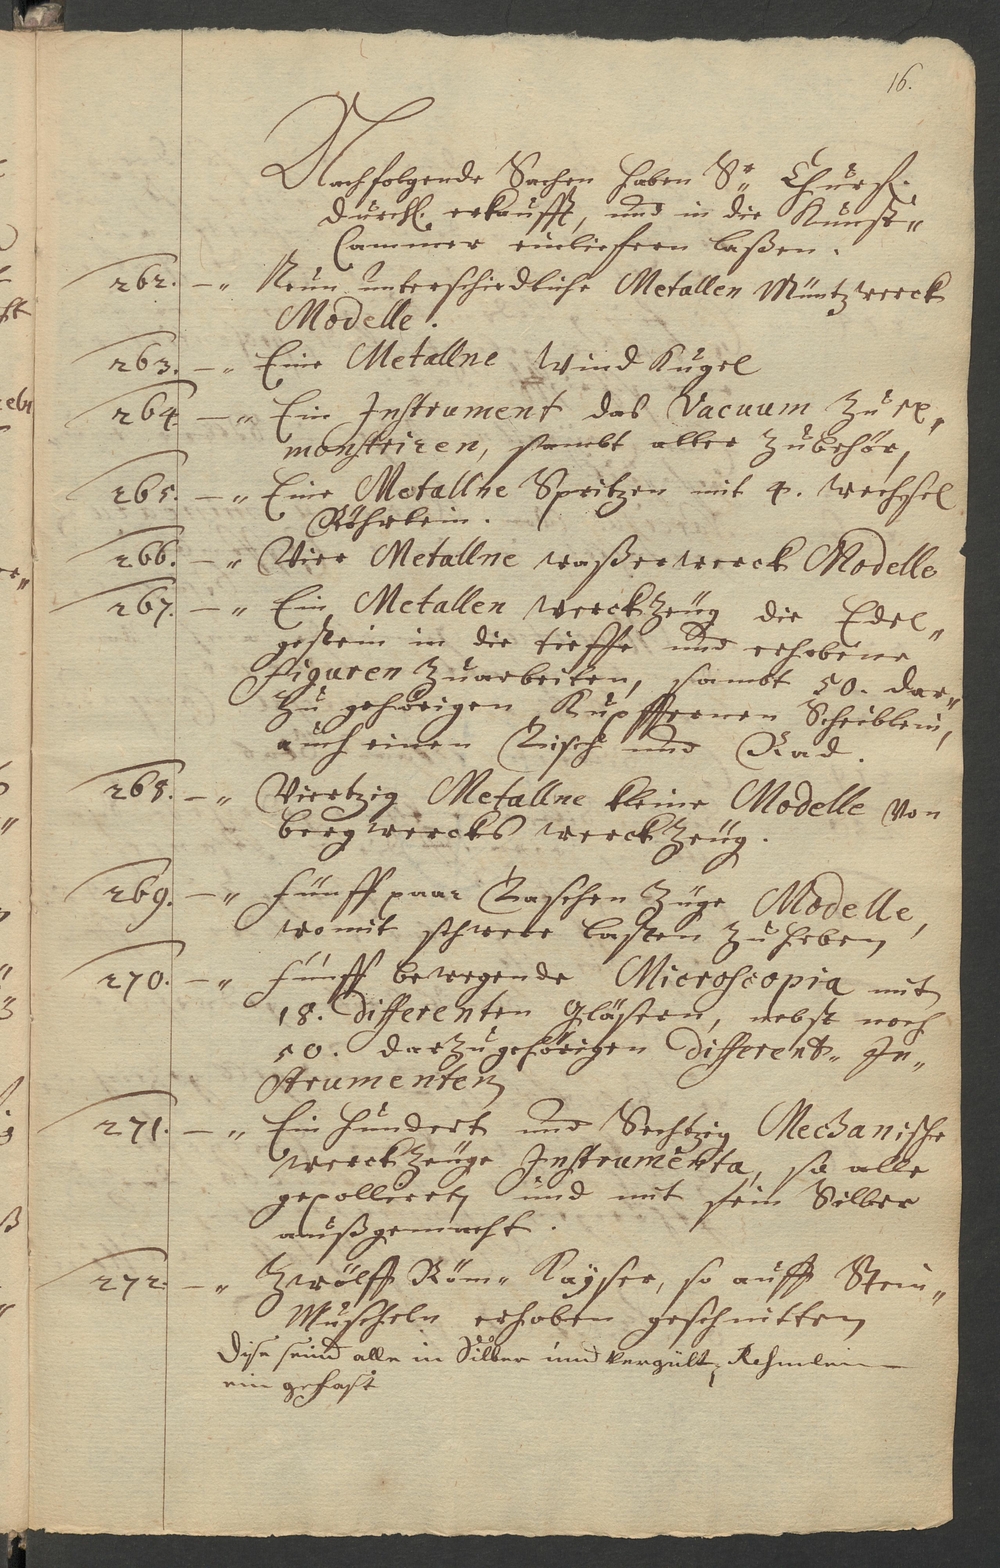 16.
Nachfolgende Sachen haben Sr. Churfl.
Durchl. erkaufft, und in die Kunst„
Cammer einliefern laßen.
262. – „ Neun unterschiedliche Metallen Müntzwerck
Modelle.
263. – „ Eine Metallne Wind Kugel
264. – „ Ein Instrument das Vacuum zu
monstriren, sambt aller Zubehör,
265. – „ Eine Metallne Spritzen mit 4. wechsel
Röhrlein.
266. – „ Vier Metallne waßerwerck Modelle
267. – „ Ein Metallen werckzeüg die Edel„
gestein in die tieffe und erhobene
Figuren zuarbeiten, sambt 50. dar„
zu gehörigen Kupffernen Scheiblein,
auch einen Tisch und Rad.
268. – „ Viertzig Metallne kleine Modelle von
bergwercks werckzeüg.
269. – „ Fünff paar Taschen Züge Modelle,
womit schwere lasten zu heben,
270. – „ Fünff bewegende Microscopia mit
18. differenten Gläsern, nebst noch
50. darzugehörigen different„ In„
strumenten
271. – „ Ein hundert und Sechtzig Mechanische
werckzeüge Instrumenta, so alle
gepolleert, und mit fein Silber
außgemacht.
272. – „ Zwölff Röm„ Kayser, so auff Stein„
Muscheln erhoben geschnitten
Dise seind alle in Silber und vergült, Rehmlein
ein gefast